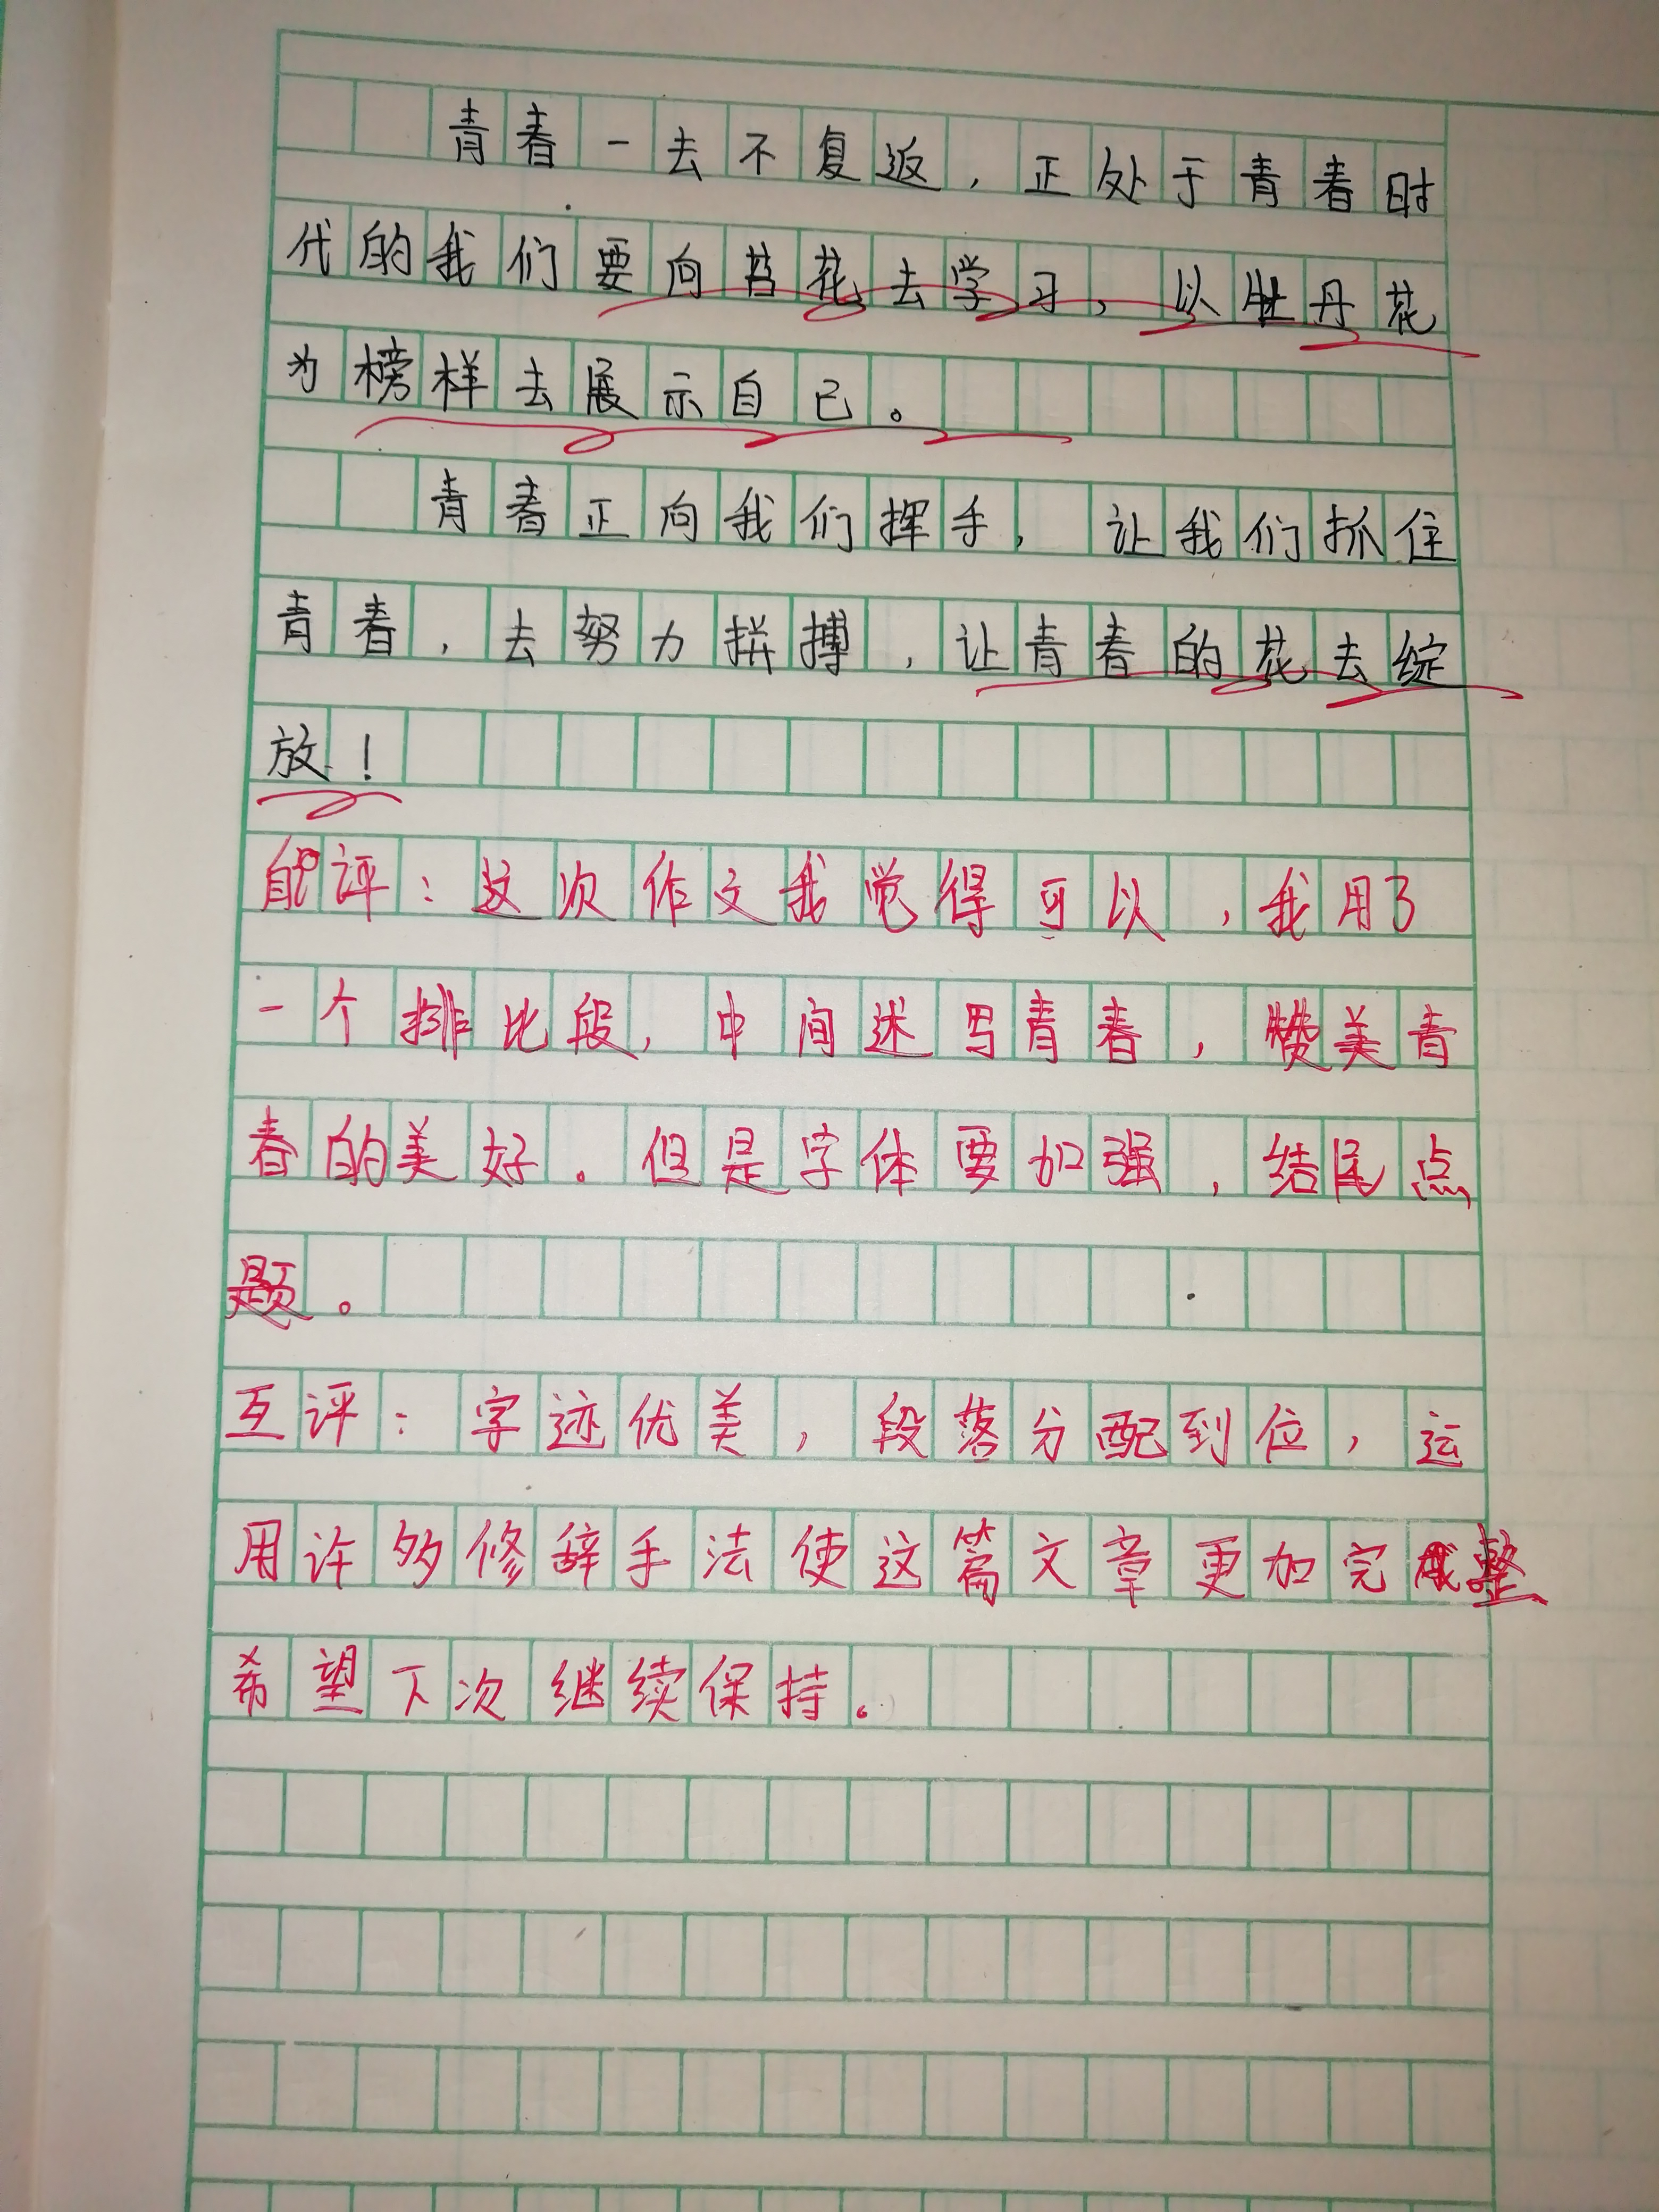 青春一去不复返，正处于青春时
代的我们要向苔花去学习，以牡丹花
为榜样去展示自己。
青春正向我们挥手，让我们抓住
青春，去努力拼搏，让青春的花去绽
放！
自评：这次作文我觉得可以，我用了
一个排比段，中间述写青春，赞美青
春的美好。但是字体要加强，结尾点
题。
互评：字迹优美，段落分配到位，运
用许多修辞手法使这篇文章更加完整
希望下次继续保持。